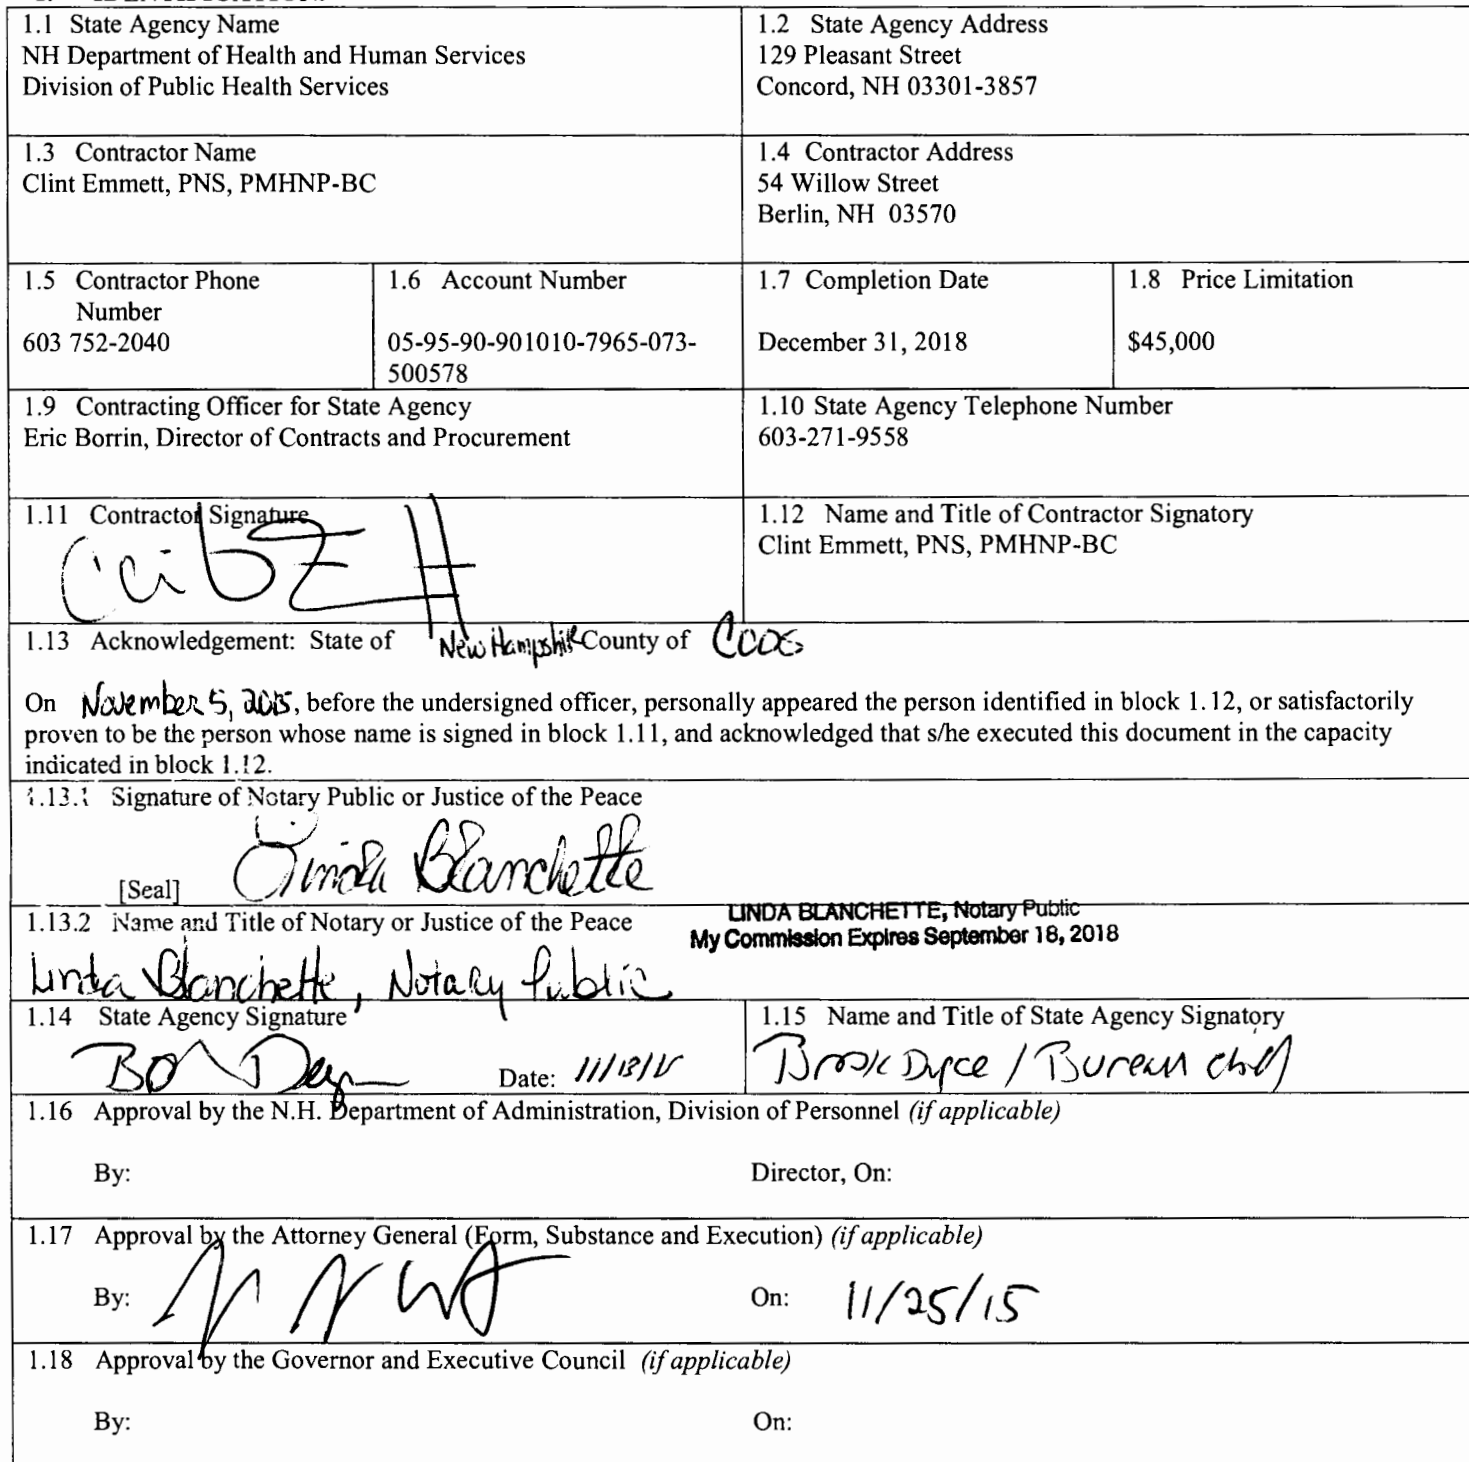 1.1 State Agency Name
NH Department of Health and Human Services
Division of Public Health Services
1.2 State Agency Address
129 Pleasant Street
Concord, NH 03301-3857
1.3 Contractor Name
Clint Emmett, PNS, PMHNP-BC
1.4 Contractor Address
54 Willow Street
Berlin, NH 03570
1.5 Contractor Phone
Number
603 752-2040
1.6 Account Number
05-95-90-901010-7965-073-
500578
1.7 Completion Date
December 31, 2018
1.8 Price Limitation
$45,000
1.9 Contracting Officer for State Agency
Eric Borrin, Director of Contracts and Procurement
1.10 State Agency Telephone Number
603-271-9558
1.11 Contractor Signature
1.12 Name and Title of Contractor Signatory
Clint Emmett, PNS, PMHNP-BC
1.13 Acknowledgement: State of New Hampshire County of COOS
On November 5, 2015, before the undersigned officer, personally appeared the person identified in block 1.12, or satisfactorily
proven to be the person whose name is signed in block 1.11, and acknowledged that s/he executed this document in the capacity
indicated in block 1.12.
1.13.1 Signature of Notary Public or Justice of the Peace
Linda Blanchette
[Seal]
1.13.2 Name and Title of Notary or Justice of the Peace
LINDA BLANCHETTE, Notary Public
My Commission Expires September 18, 2018
Linda Blanchette, Notary Public
1.14 State Agency Signature
Date:
1.15 Name and Title of State Agency Signatory
Brook Dupee / Bureau chief
1.16 Approval by the N.H. Department of Administration, Division of Personnel (if applicable)
By:
Director, On:
1.17 Approval by the Attorney General (Form, Substance and Execution) (if applicable)
By:
On: 11/25/15
1.18 Approval by the Governor and Executive Council (if applicable)
By:
On: